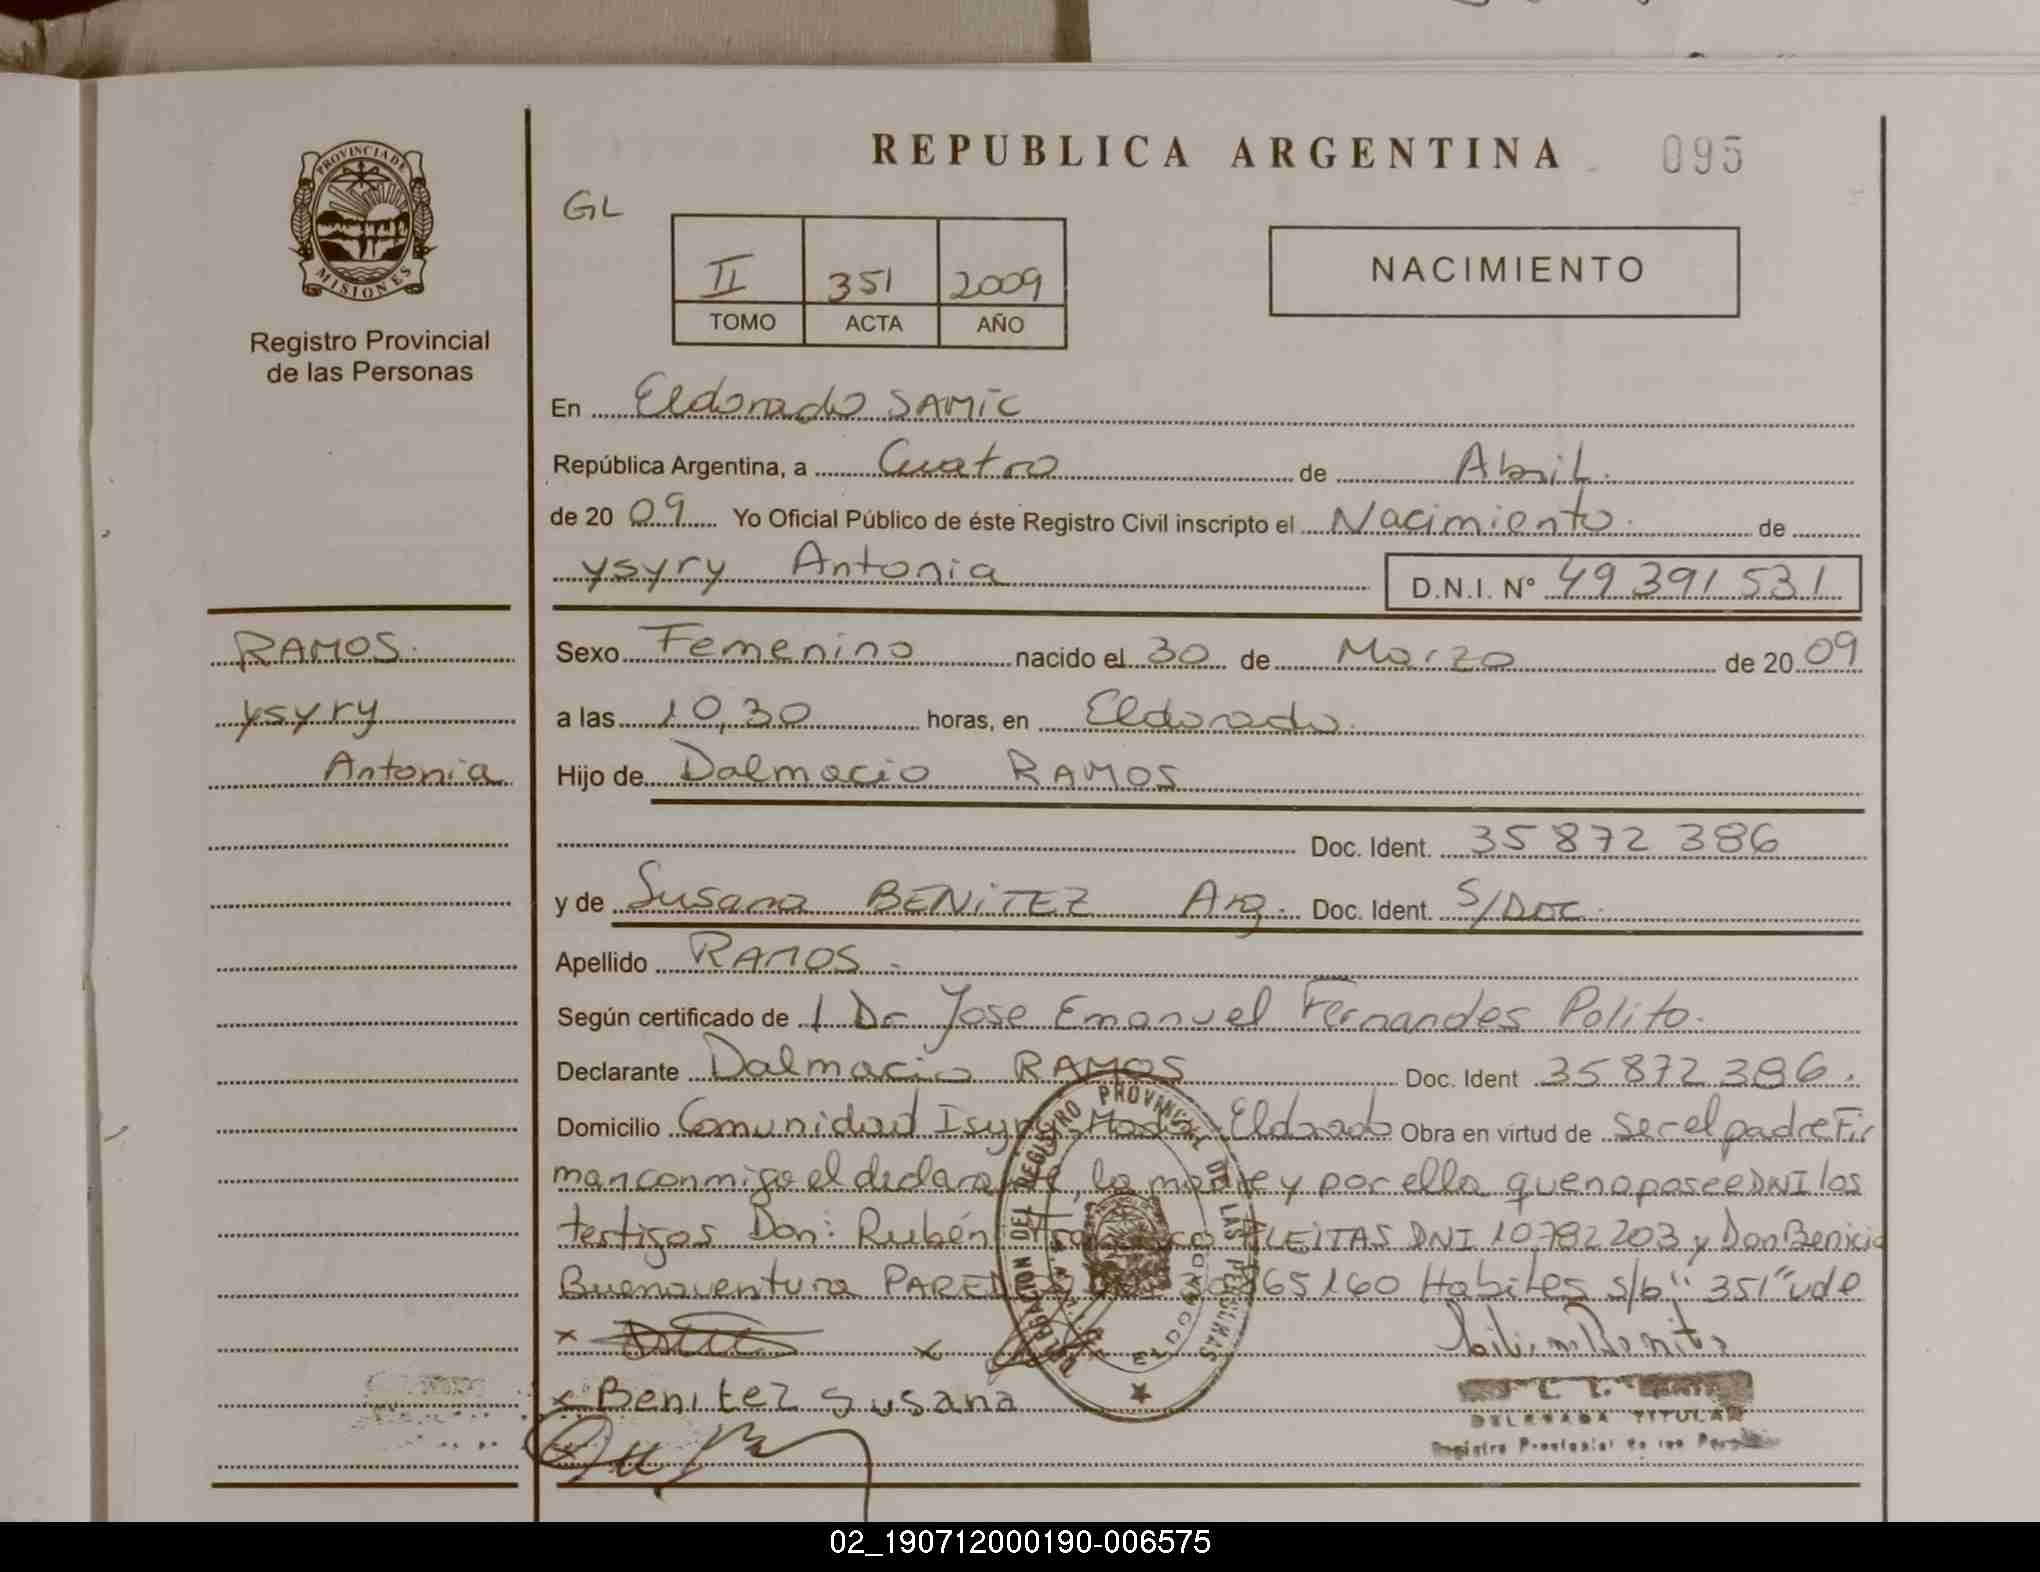 REPUBLICA ARGENTINA 095
PROVINCIA DE MISIONES
Registro Provincial
de las Personas
GL
II 351 2009
TOMO ACTA AÑO
NACIMIENTO
En Eldorado SAMIC
República Argentina, a Cuatro de Abril.
de 20 09 Yo Oficial Público de éste Registro Civil inscripto el Nacimiento. de
ysyry Antonia D.N.I. Nº 49 391 531
RAMOS.
ysyry
Antonia
Sexo Femenino nacido el 30 de Marzo de 20 09
a las 10,30 horas, en Eldorado.
Hijo de Dalmacio RAMOS
Doc. Ident. 35 872 386
y de Susana BENITEZ Arg. Doc. Ident. S/DOC.
Apellido RAMOS.
Según certificado de 1 Dr Jose Emanuel Fernandes Polito.
Declarante Dalmacio RAMOS Doc. Ident 35 872 386.
Domicilio Comunidad Eldorado Obra en virtud de ser el padre Fir
man conmigo el declarante, la madre y por ella que no posee DNI los
testigos Don: Rubén ALEITAS DNI 10782203 y Don Benicio
Buenaventura PAREDES Habiles s/b "351" vde
x x
x Benitez Susana
DELEGACION DEL REGISTRO PROVINCIAL DE LAS PERSONAS
ELDORADO
DELEGADA TITULAR
Registro Provincial de las
02_190712000190-006575